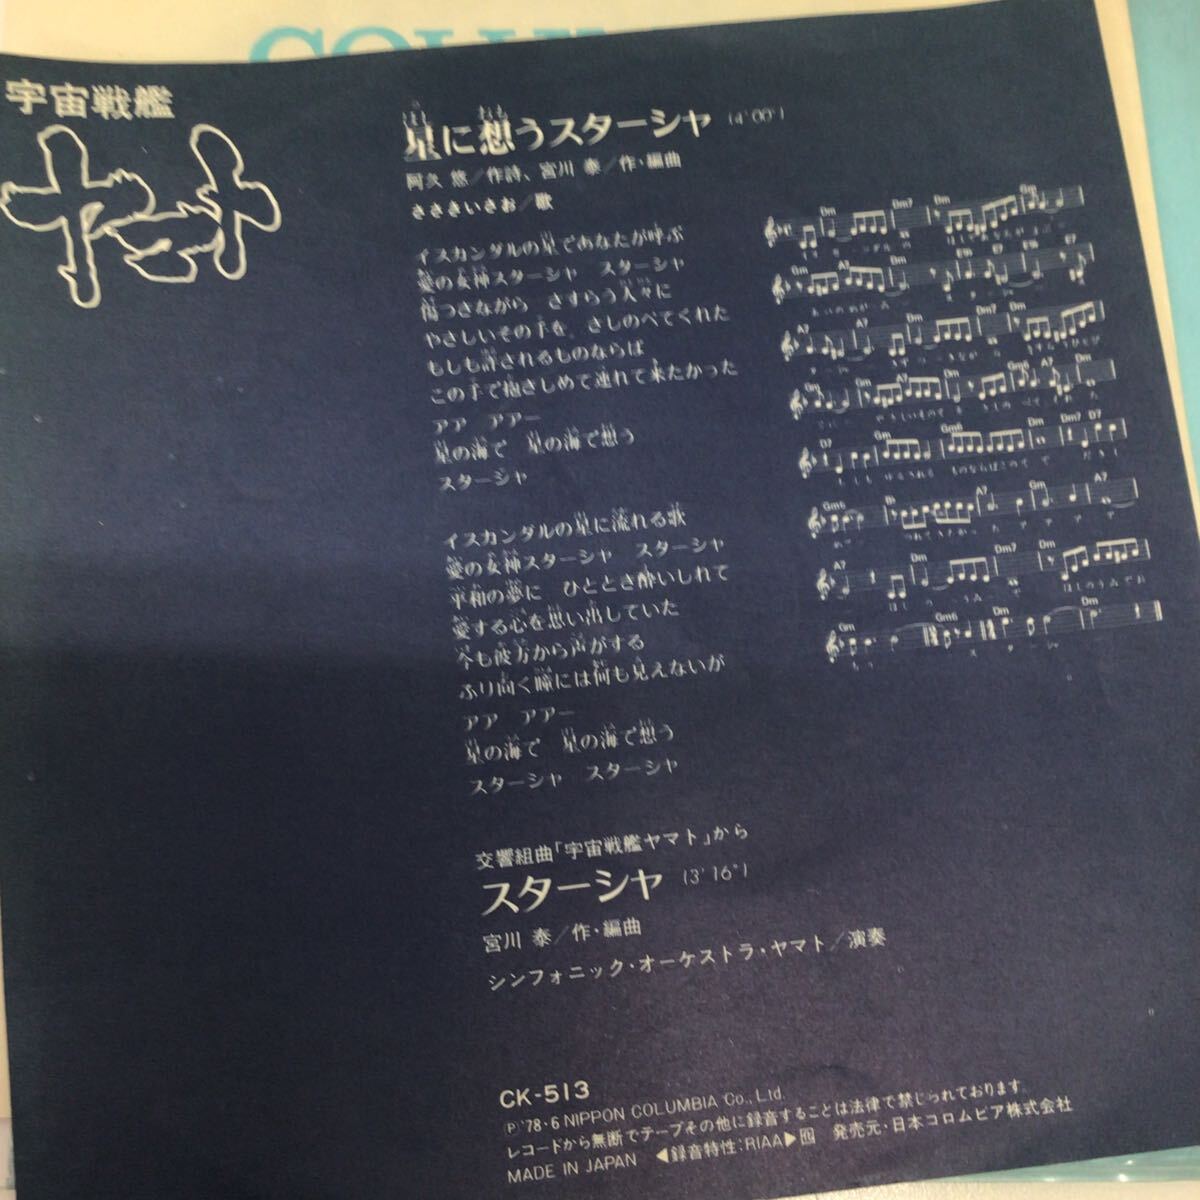 宇宙戦艦
ヤマト
星に想うスターシャ (4'00")
阿久 悠／作詩、宮川 泰／作・編曲
ささきいさお／歌
イスカンダルの星であなたが呼ぶ
愛の女神スターシャ スターシャ
傷つきながら さすらう人々に
やさしいその手を、さしのべてくれた
もしも許されるものならば
この手で抱きしめて連れて来たかった
アア アアー
星の海で 星の海で想う
スターシャ
イスカンダルの星に流れる歌
愛の女神スターシャ スターシャ
平和の夢に ひととき酔いしれて
愛する心を想い出していた
今も彼方から声がする
ふり向く瞳には何も見えないが
アア アアー
星の海で 星の海で想う
スターシャ スターシャ
交響組曲「宇宙戦艦ヤマト」から
スターシャ (3'16")
宮川 泰／作・編曲
シンフォニック・オーケストラ・ヤマト／演奏
CK-513
Ⓟ'78・6 NIPPON COLUMBIA Co., Ltd.
レコードから無断でテープその他に録音することは法律で禁じられております。
MADE IN JAPAN ◀録音特性:RIAA▶ 発売元・日本コロムビア株式会社